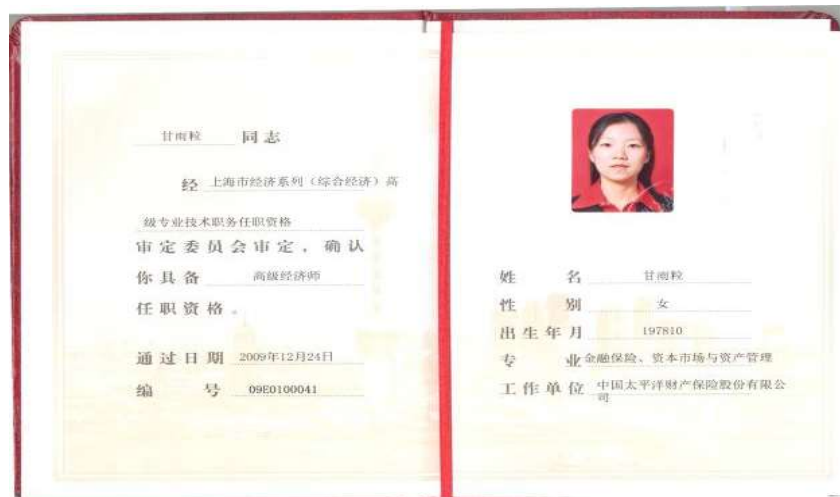 甘雨粒 同志
经 上海市经济系列（综合经济）高
级专业技术职务任职资格
审定委员会审定，确认
你具备 高级经济师
任职资格。
通过日期 2009年12月24日
编号 09E0100041
姓名 甘雨粒
性别 女
出生年月 197810
专业 金融保险、资本市场与资产管理
工作单位 中国太平洋财产保险股份有限公
司